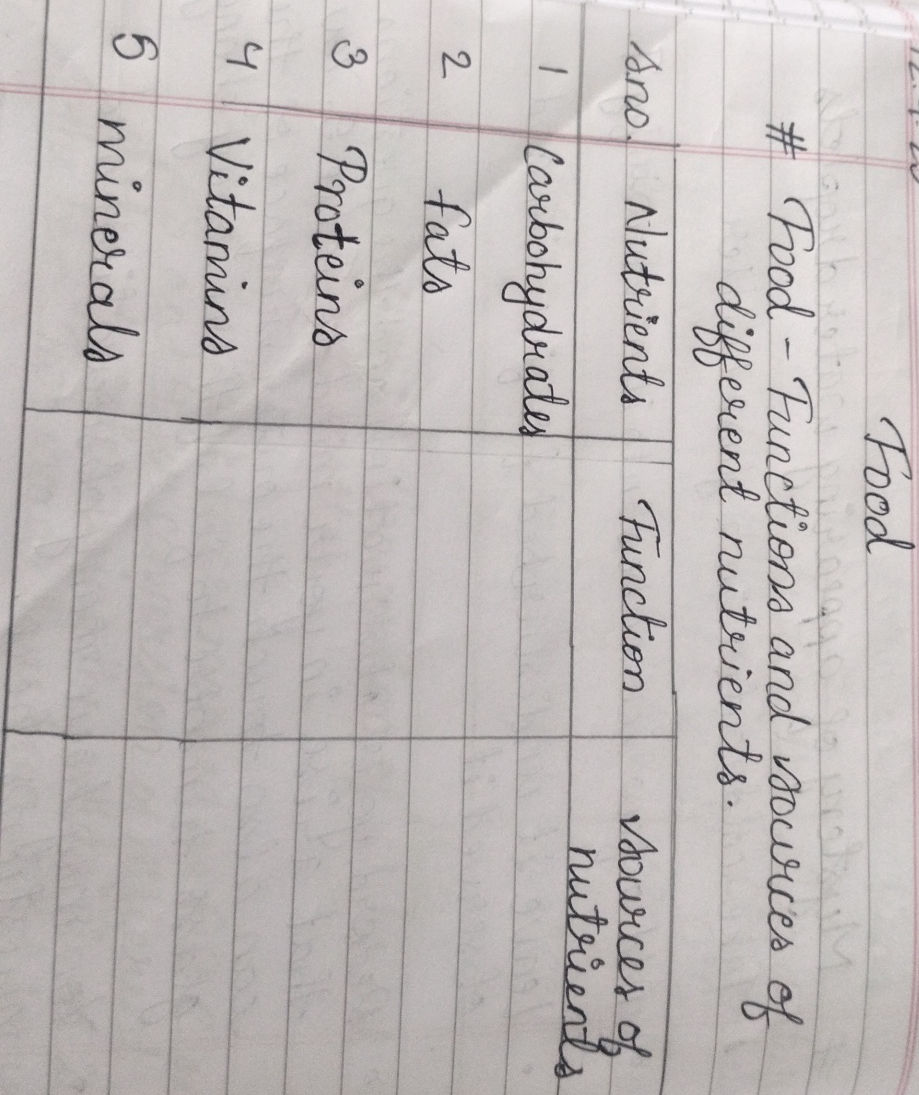 Food
# Food - Functions and sources of
different nutrients.
S.no. Nutrients Function sources of
nutrients
1 Carbohydrates
2 fats
3 Proteins
4 Vitamins
5 minerals